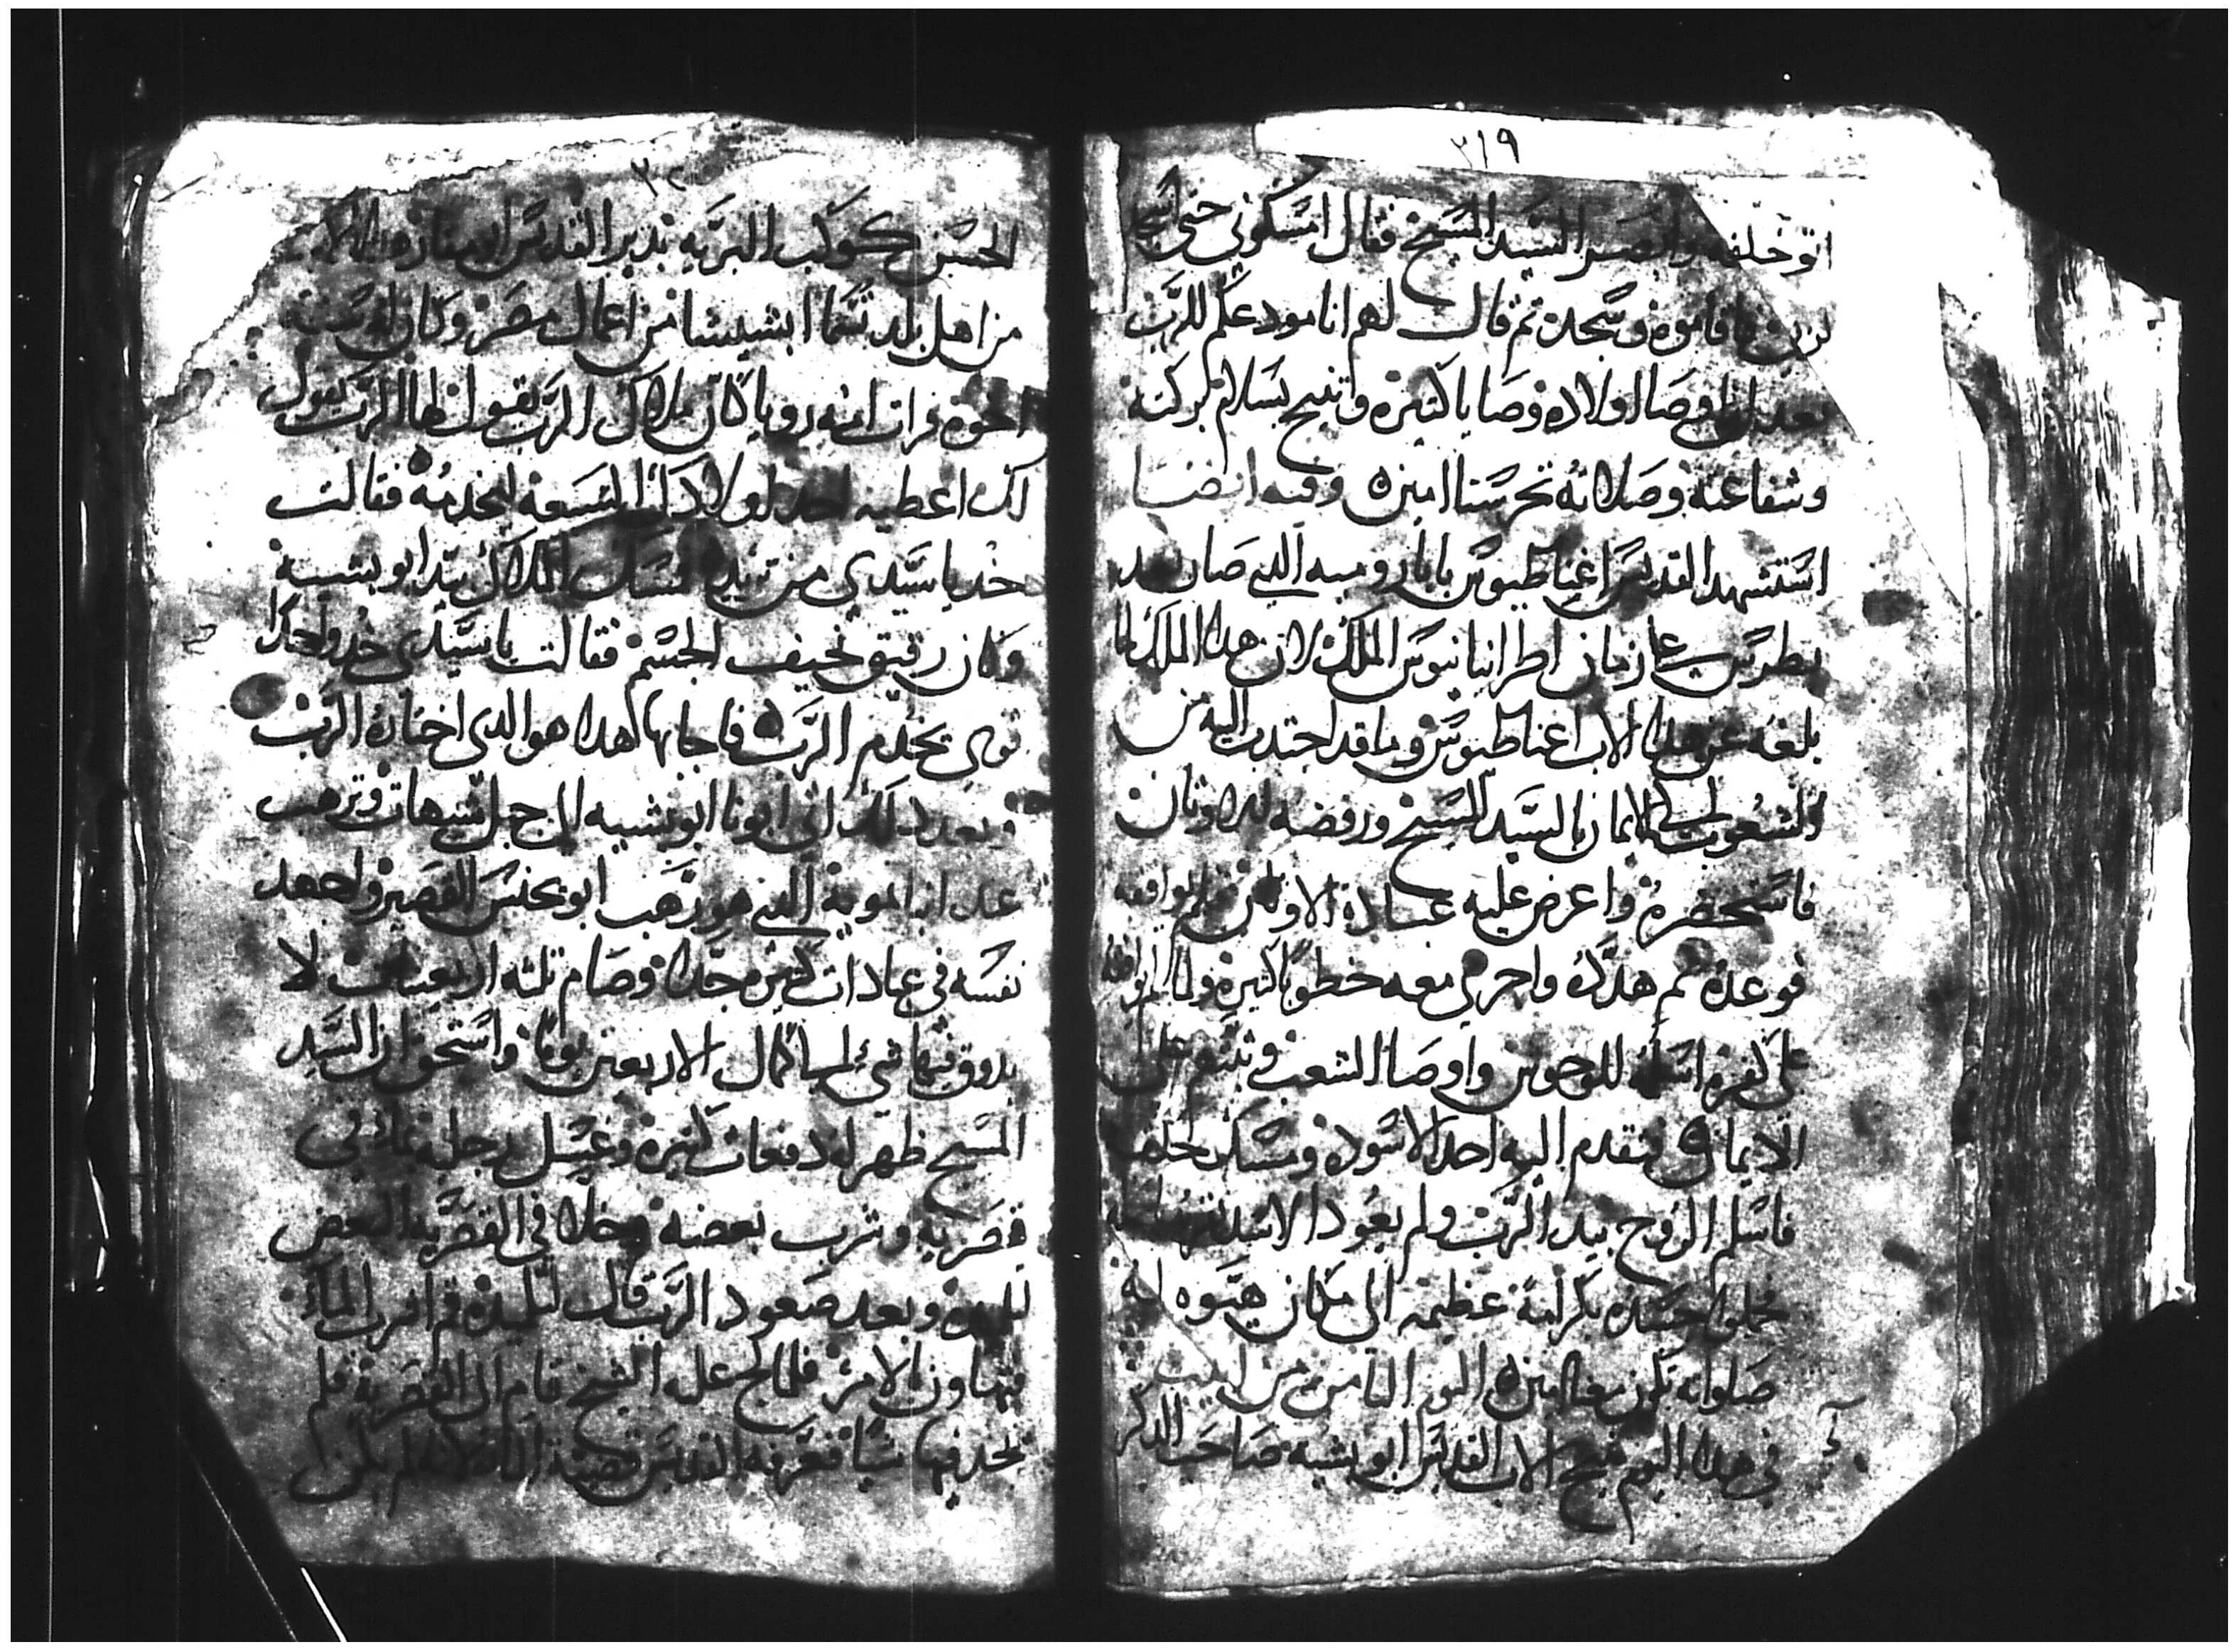 ٢١٩
السيد المسيح فقال امسكوني حتى اسجد
فاقاموه وسجد ثم قال لهم انا مودعكم للرب
بعد اوصا اولاده وصايا كثيره وتنيح بسلام بركته
وشفاعته وصلاته تحرسنا امين وفيه ايضا
استشهد القديس اغناطيوس بابا روميه الدي صار بعد
بطرس زمان اطرانيانيوس الملك لان هدا الملك لما
بلغه عن هدا الاب اغناطيوس وما قد اجتدب اليه من
الشعوب الى الايمان بالسيد المسيح ورفضه للاوثان
فاستحضره واعرض عليه عبادة الاوثان فلم يوافقه
فوعده ثم هدده واجرى معه خطوبا كثيره ولما لم يوافقه
على كفره اسلمه للوحوش واوصا الشعب وثبتهم على
الايمان فتقدم اليه احد الاسود ومسك بحلقه
فاسلم الروح بيد الرب ولم يعود الاسد
فحملوا جسده بكرامة عظيمه الى مكان هيوه له
صلواته تكون معنا امين اليوم التامن من ابيب
في هدا اليوم تنيح الاب القديس ابو بشيه صاحب الدكر
الحسن كوكب البريه بدير القديس ابو مقاره
من اهل بلد تسما ابشيشا من اعمال مصر وكان له ستة
اخوة فرات امه رويا كان ملاك الرب يقول لها الرب يقول
لك اعطيه احد اولادك التسعه ليخدمه فقالت
خد يا سيدي من تريد فمسك الملاك بيد ابو بشيه
وكان رقيق نحيف الجسم فقالت يا سيدي خد واحدا
قوي يخدم الرب فاجابها هدا هو الدي اختاره الرب
وبعد دلك اتى ابونا ابو بشيه الى جبل شيهات وترهب
عند انبا بمويه الدي هو رهب ابو يحنس القصير واجهد
نفسه في عبادات كثيره جدا وصام تلته اربعينات لا
يدوق فيها شي الى كمال الاربعين يوما واستحق ان السيد
المسيح ظهر له دفعات كثيره وغسل رجليه بماء في
قصريه وشرب بعضه وخلا في القصريه البعض
لتلميده وبعد صعود الرب قال لتلميده قم اشرب الماء
فتهاون بالامر فلما لح عليه الشيخ قام الى القصرية فلم
يجد فيها شيا فعرفه القديس قضية الماء لانه لم يكن